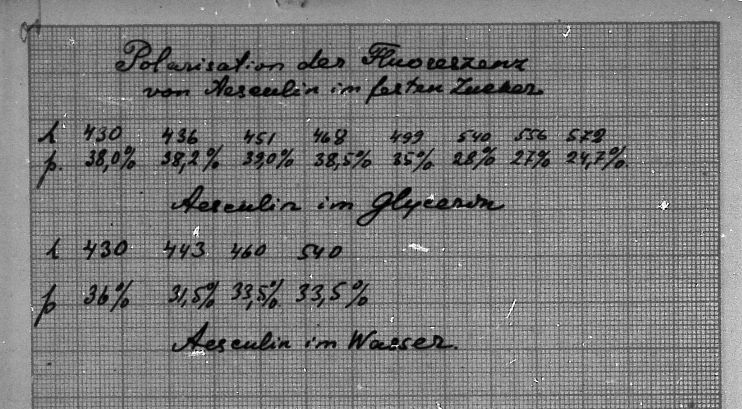 Polarisation der Fluoreszenz
von Aesculin im festen Zucker.
λ 430 436 451 468 499 540 556 578
p. 38,0% 38,2% 39,0% 38,5% 35% 28% 27% 24,7%.
Aesculin im Glycerin
λ 430 443 460 540
p 36% 31,5% 33,5% 33,5%
Aesculin im Wasser.